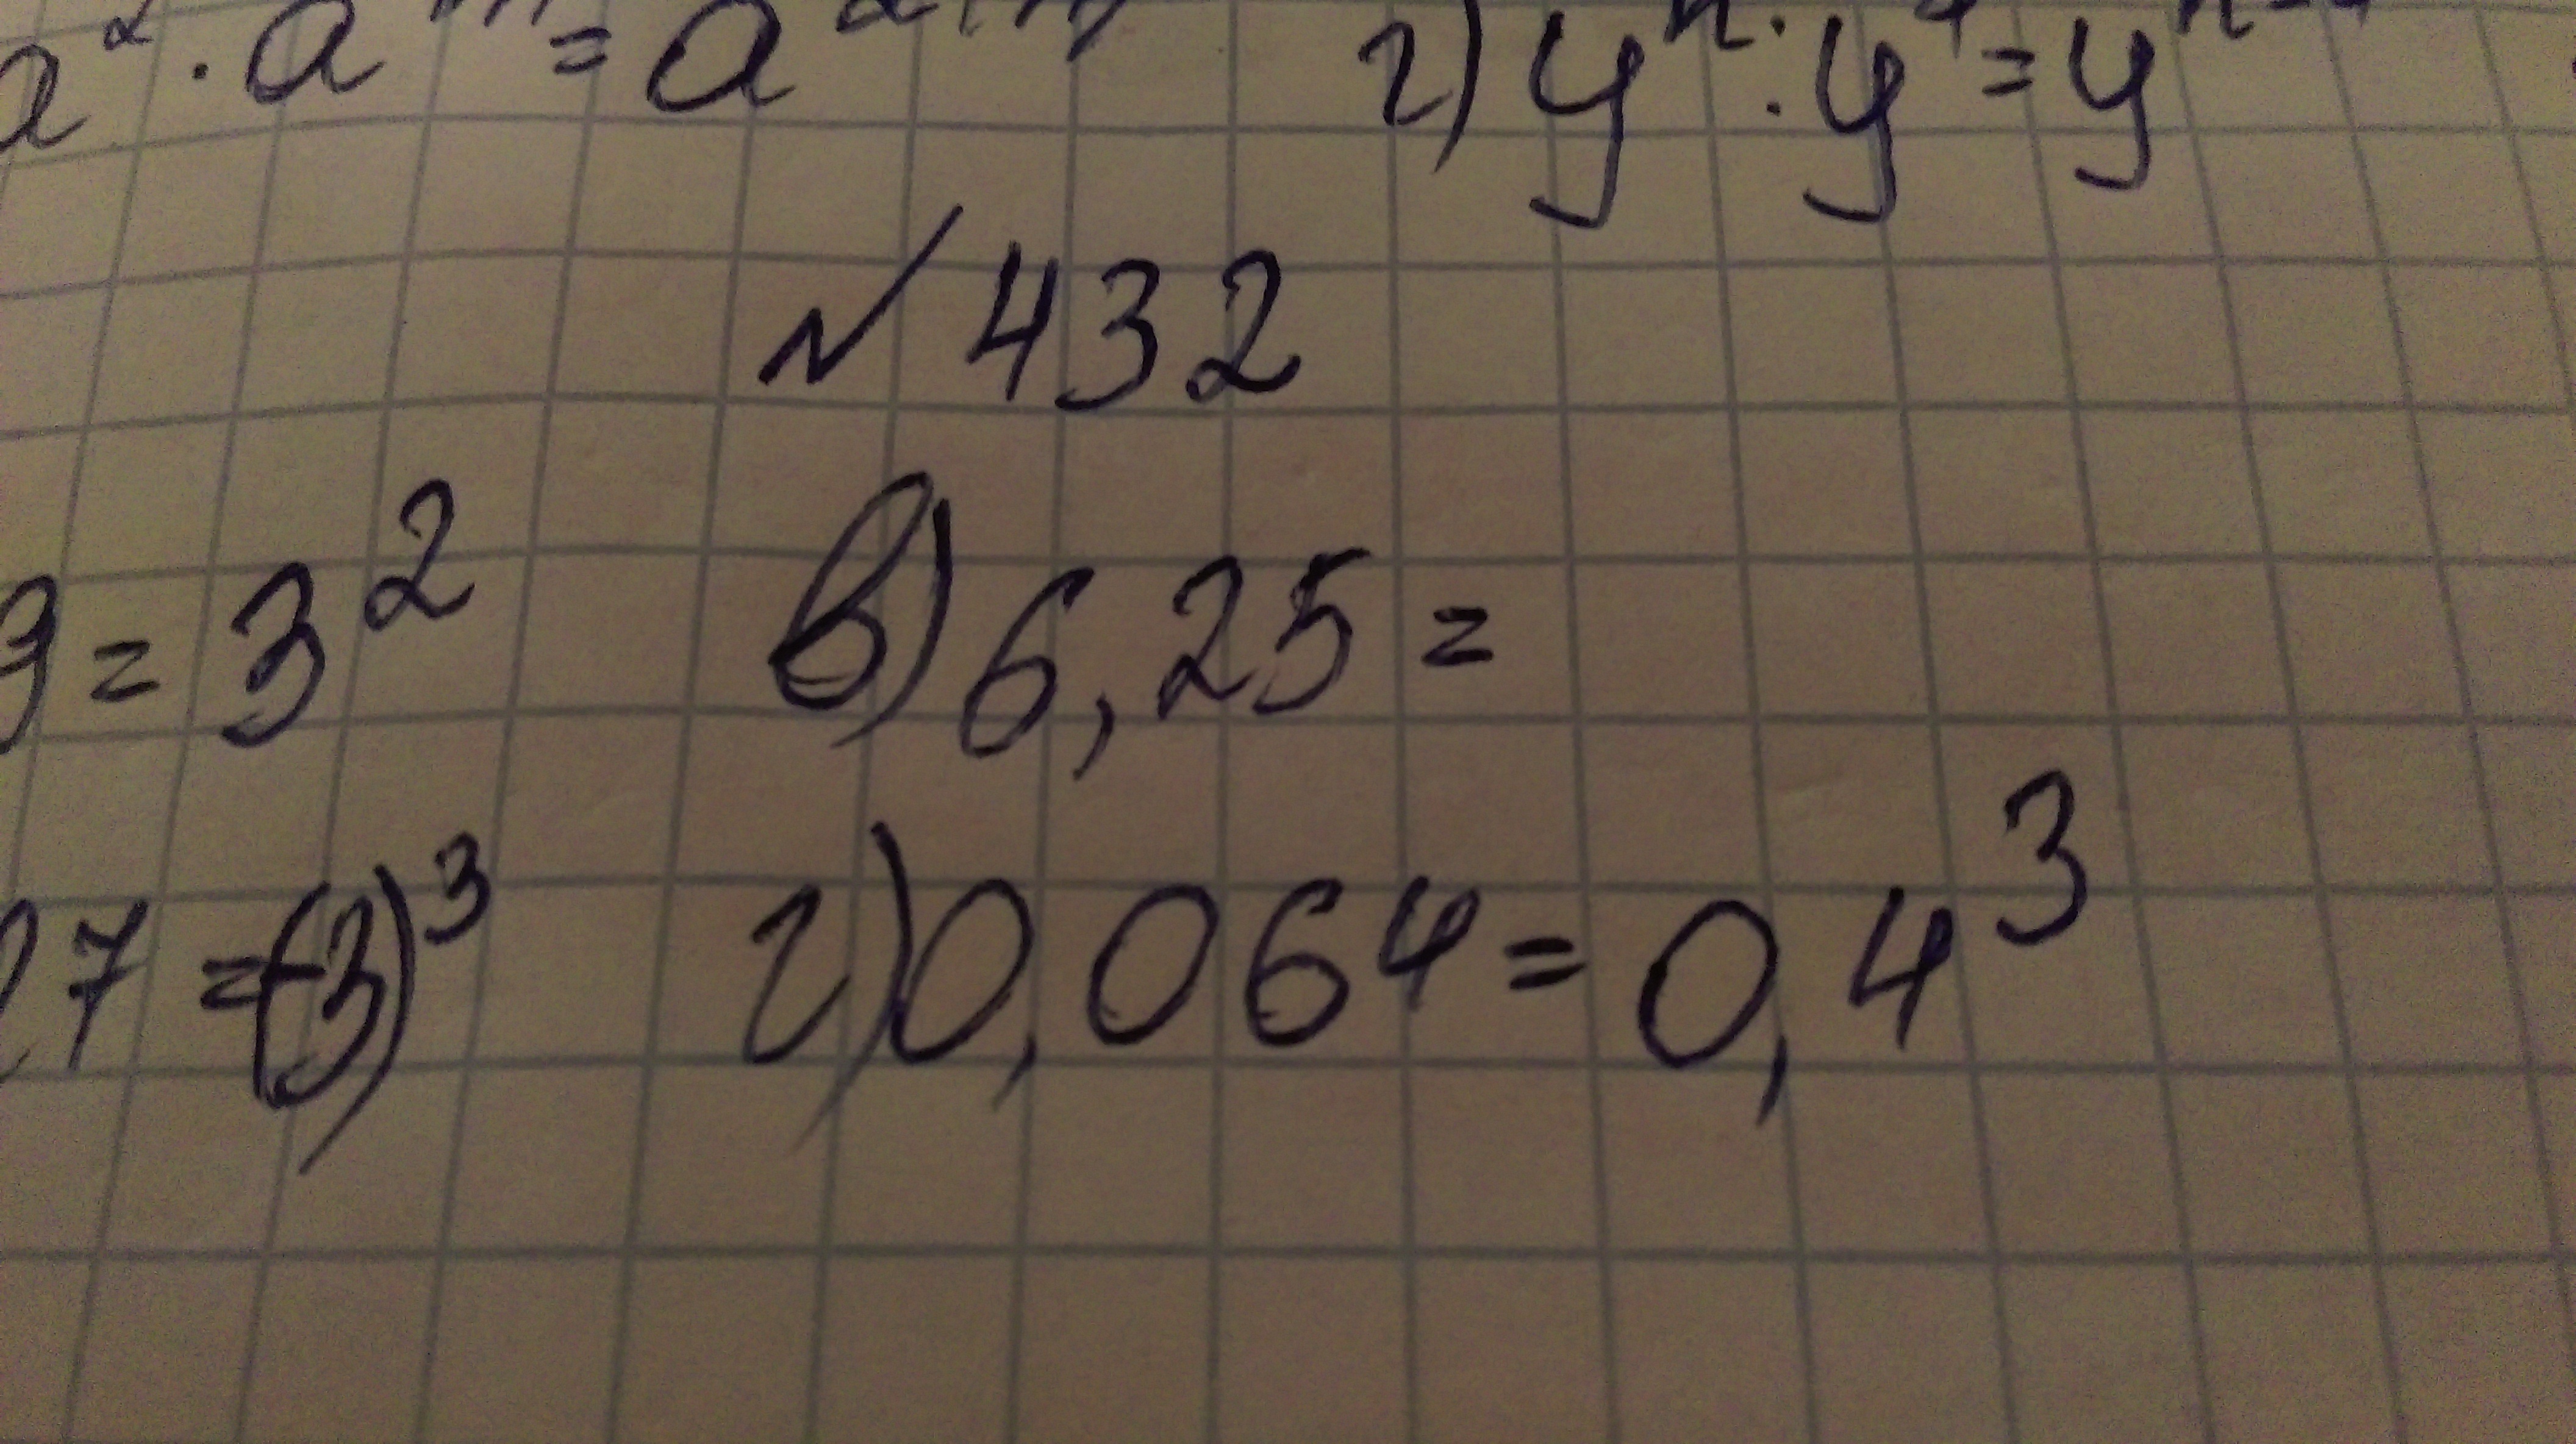 a² · a^m = a^2+m г) y^n : y⁴ = y^n-4
№ 432
9 = 3² в) 6,25 =
27 = (-3)³ г) 0,064 = 0,4³